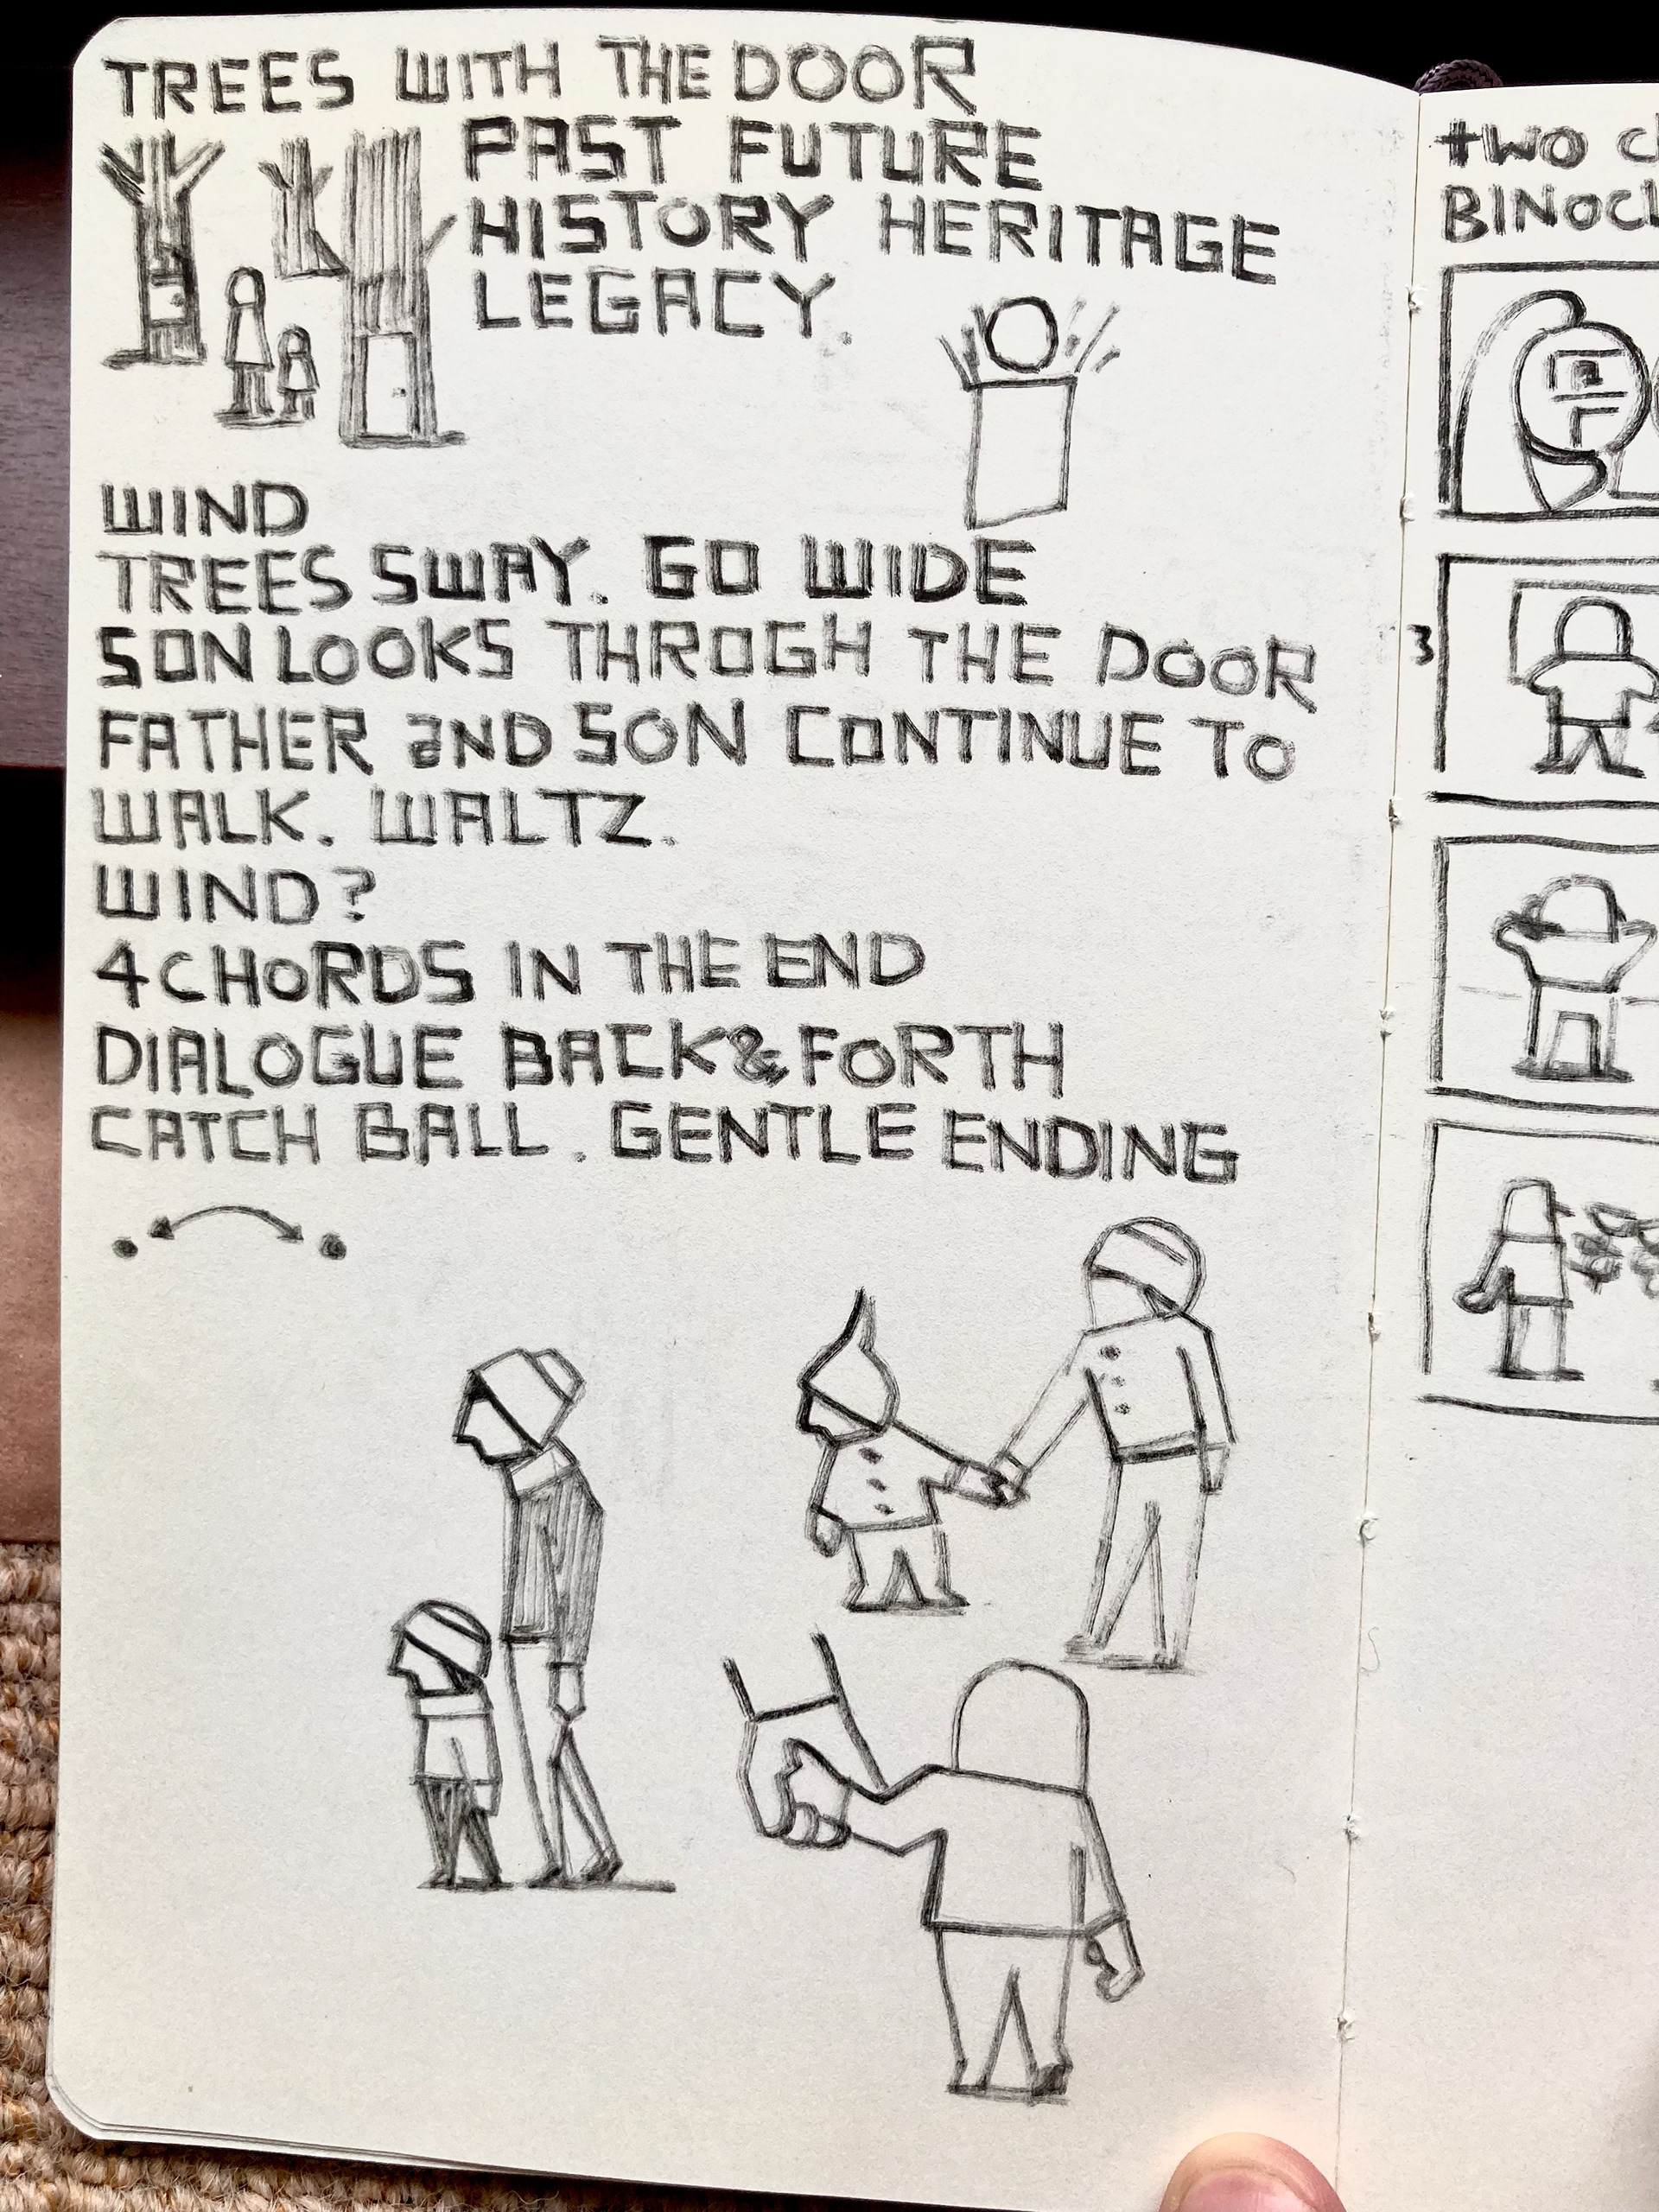 TREES WITH THE DOOR
PAST FUTURE
HISTORY HERITAGE
LEGACY.
WIND
TREES SWAY. GO WIDE
SON LOOKS THROGH THE DOOR
FATHER AND SON CONTINUE TO
WALK. WALTZ.
WIND?
4 CHORDS IN THE END
DIALOGUE BACK & FORTH
CATCH BALL. GENTLE ENDING
TWO
3